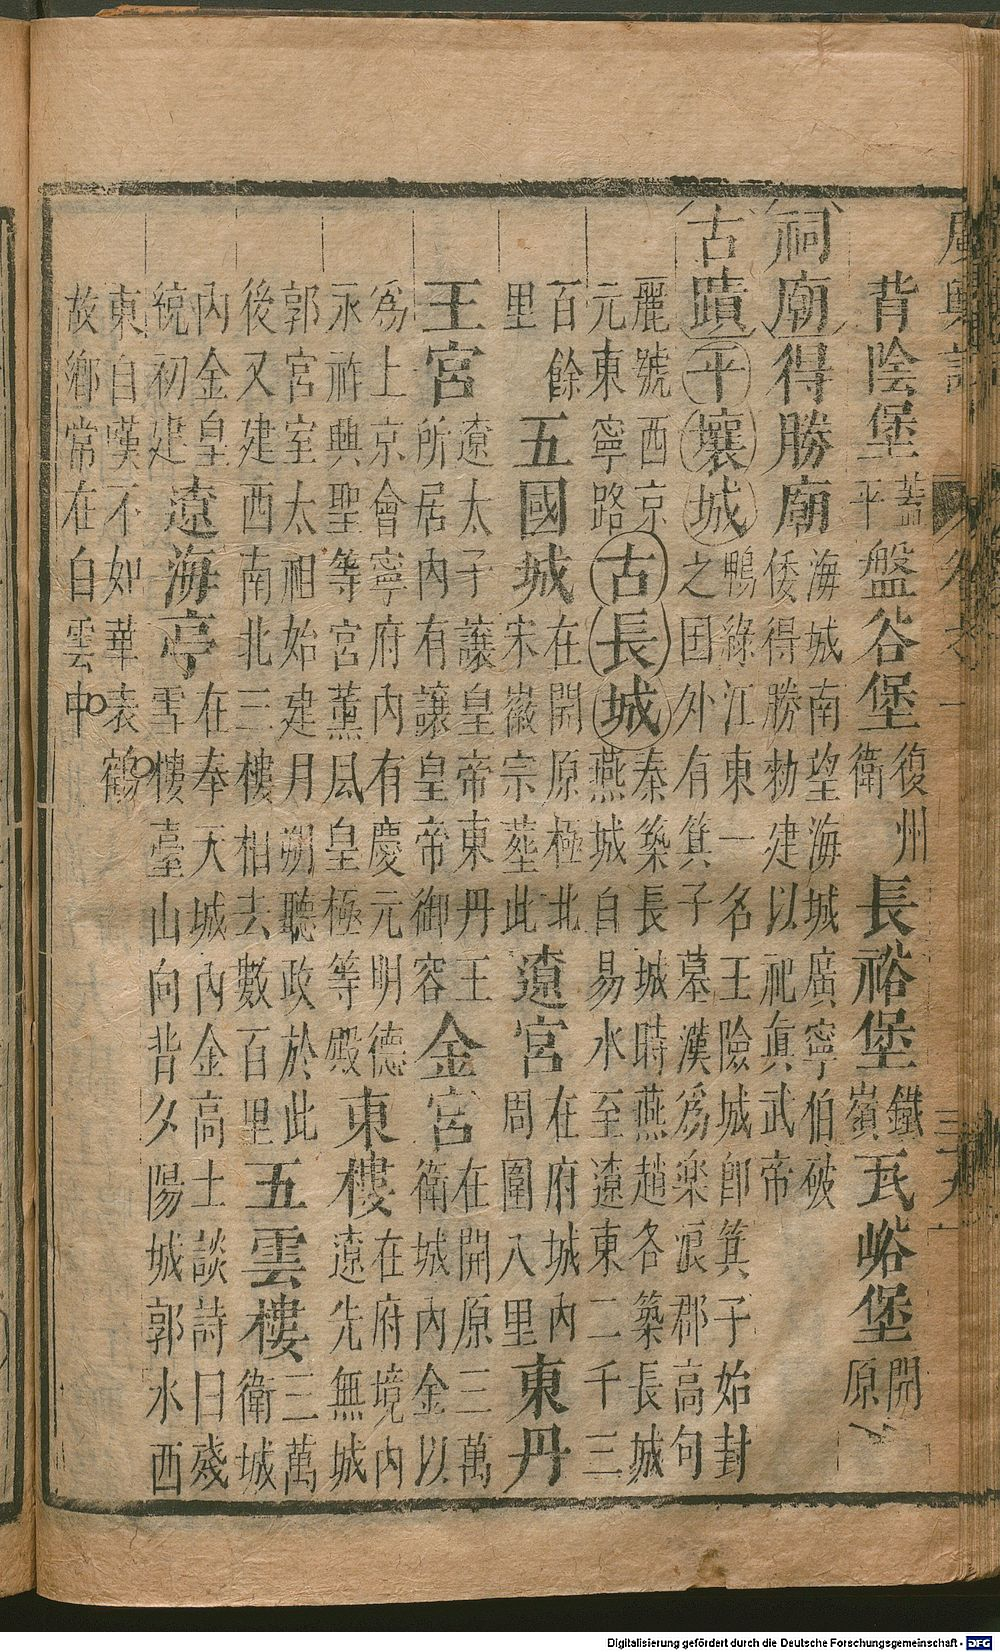 廣輿記 卷之一 三十九
背陰堡 蓋平 盤谷堡 復州衛 長裕堡 鐵嶺 瓦峪堡 開原
祠廟 得勝廟 海城南望海城廣寧伯破倭得勝勑建以祀眞武帝
古蹟 平壤城 鴨綠江東一名王險城卽箕子始封之囯外有箕子墓漢爲楽浪郡高句
麗號西京元東寧路 古長城 秦築長城時燕趙各築長城燕城自易水至遼東二千三
百餘里 五國城 在開原極北宋徽宗葬此 遼宮 在府城內周圍八里 東丹
王宮 遼太子讓皇帝東丹王所居內有讓皇帝御容 金宮 在開原三萬衛城內金以
爲上京會寧府內有慶元明德永祚興聖等宮薰風皇極等殿 東樓 在府境內遼先無城
郭宮室太祖始建月朔聽政於此後又建西南北三樓相去數百里 五雲樓 三萬衛城
內金皇統初建 遼海亭 在奉天城內金高士談詩曰殘雪樓臺山向背夕陽城郭水西
東自嘆不如華表鶴故鄉常在白雲中
Digitalisierung gefördert durch die Deutsche Forschungsgemeinschaft - DFG